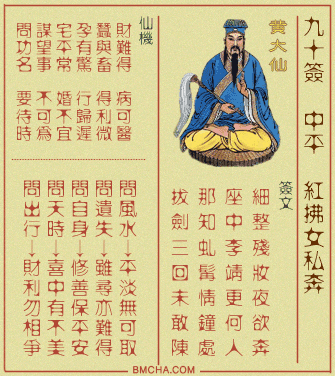 九十簽　中平　紅拂女私奔
黃大仙
簽文
細整殘妝夜欲奔
座中李靖更何人
那知虬髯情鐘處
拔劍三回未敢陳
仙機
財難得　病可醫
蠶與畜　得利微
孕有驚　行歸遲
宅平常　婚不宜
謀望事　不可為
問功名　要待時
問風水→平淡無可取
問遺失→雖尋亦難得
問自身→修善保平安
問天時→喜中有不美
問出行→財利勿相爭
BMCHA.COM